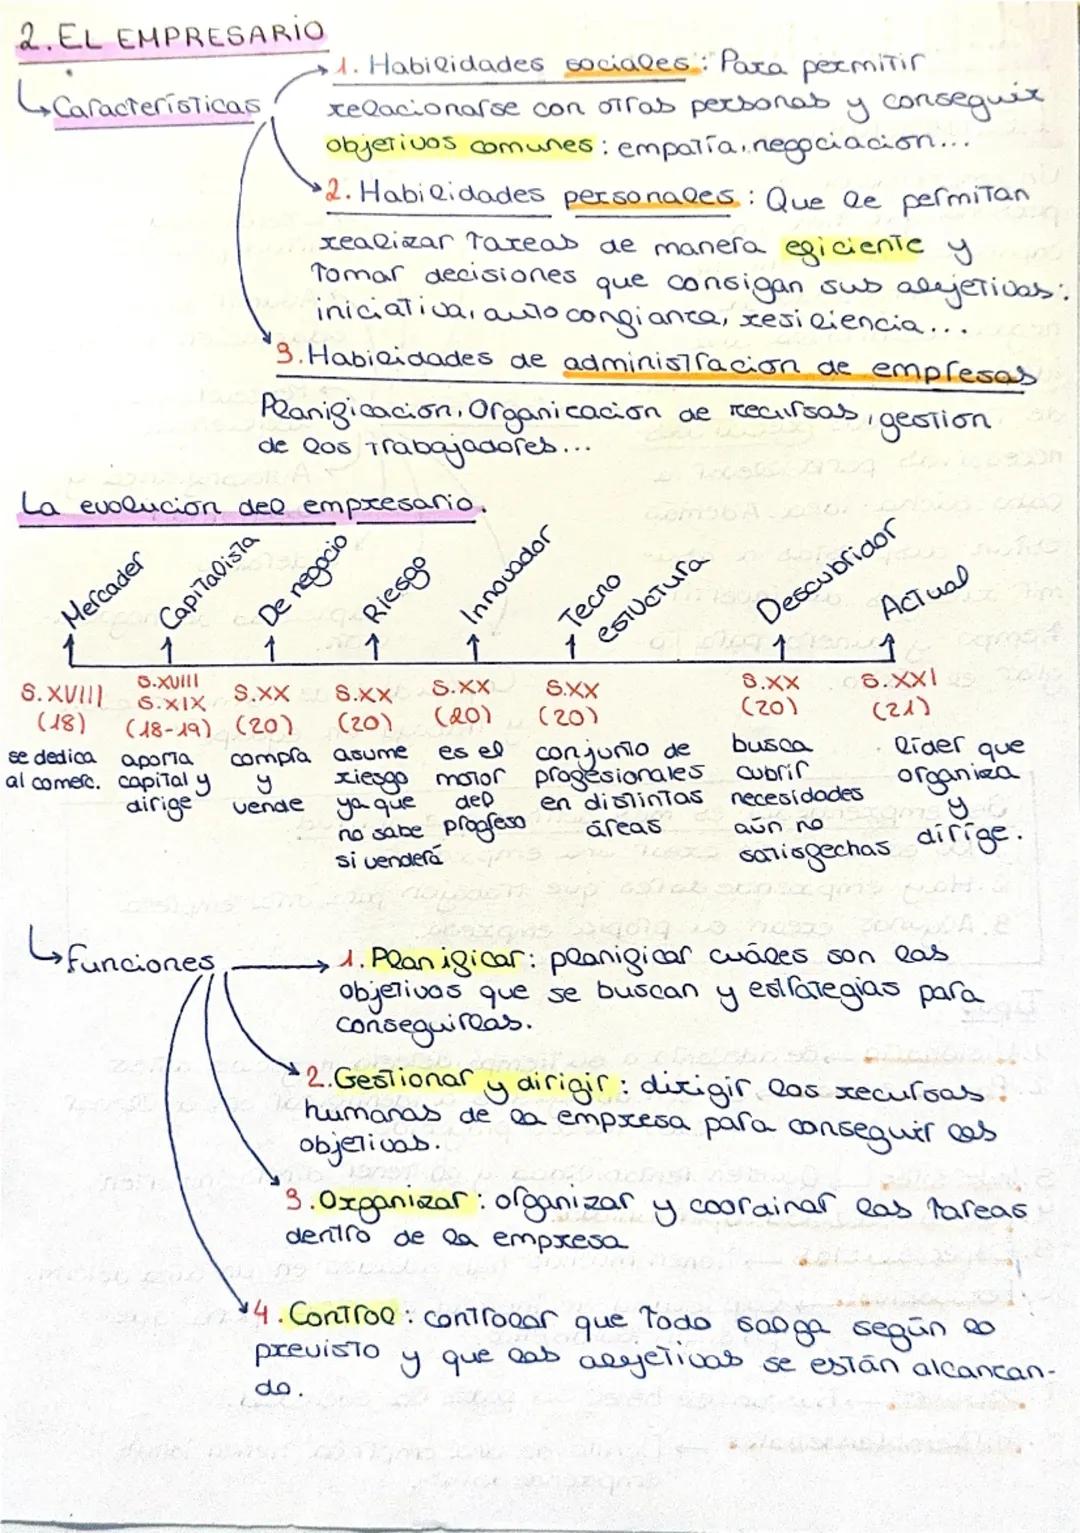 2. EL EMPRESARIO
Características
1. Habilidades sociales: Para permitir
relacionarse con otras personas y conseguir
objetivos comunes: empatía, negociación...
2. Habilidades personales: Que le permitan
realizar tareas de manera eficiente y
tomar decisiones que consigan sus objetivos:
iniciativa, auto confianza, resiliencia...
3. Habilidades de administración de empresas
Planificación, Organización de recursos, gestión
de los trabajadores...
La evolución del empresario.
Mercader
Capitalista
De negocio
Riesgo
Innovador
Tecno
estuctura
Descubridor
Actual
S.XVIII
(18)
S.XVIII
S.XIX
(18-19)
S.XX
(20)
S.XX
(20)
S.XX
(20)
S.XX
(20)
S.XX
(20)
S.XXI
(21)
se dedica
al comerc.
aporta
capital y
dirige
compra
y
vende
asume
riesgo
ya que
no sabe
si venderá
es el
motor
del
progreso
conjunto de
profesionales
en distintas
áreas
busca
cubrir
necesidades
aún no
satisfechas
líder que
organiza
y
dirige.
Funciones
1. Planificar: planificar cuáles son los
objetivos que se buscan y estrategias para
conseguirlos.
2. Gestionar y dirigir: dirigir los recursos
humanos de la empresa para conseguir los
objetivos.
3. Organizar: organizar y coordinar las tareas
dentro de la empresa
4. Control: controlar que todo salga según lo
previsto y que los objetivos se están alcanzan-
do.